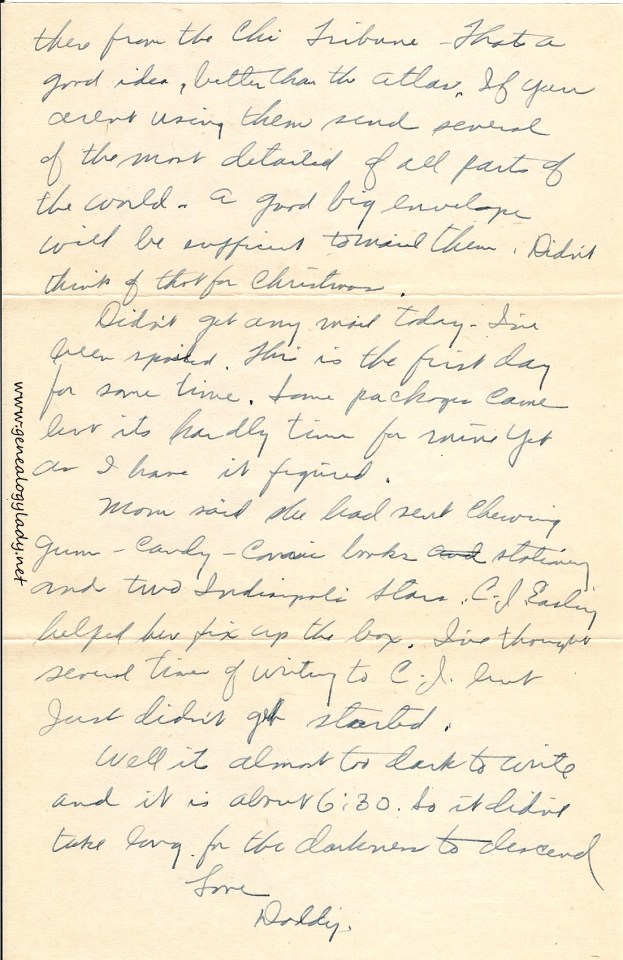 them from the Chi Tribune - That's a
good idea, better than the atlas. If you
arent using them send several
of the most detailed of all parts of
the world - a good big envelope
will be sufficient to mail them. Didn't
think of that for Christmas.
Didn't get any mail today - I've
been spoiled. This is the first day
for some time. Some packages came
but its hardly time for mine yet
as I have it figured.
Mom said she had sent chewing
gum - candy - comic books and stationery
and two Indianpolis Stars. C.J. Easling
helped her fix up the box. I've thought
several times of writing to C.J. but
Just didn't get started.
Well it almost too dark to write
and it is about 6:30. So it didn't
take long for the darkness to descend
Love
Daddy.
www.genealogylady.net